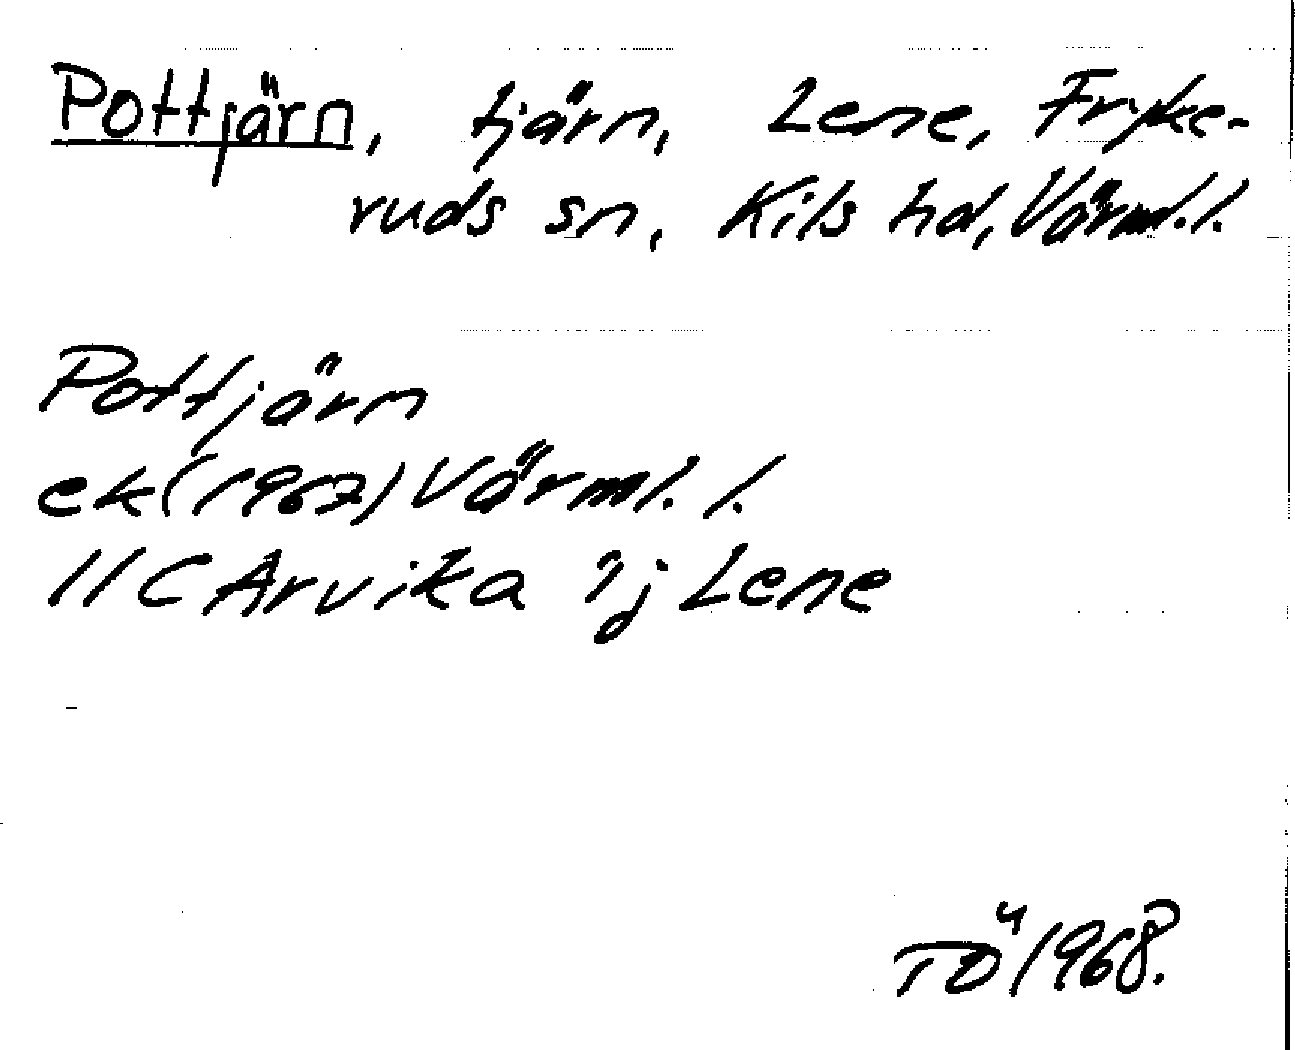 Pottjärn, tjärn, Lene, Fryke-
ruds sn, Kils hd, Värml. l.
Pottjärn
ek (1967) Värml. l.
11C Arvika 1j Lene
TÖ 1968.